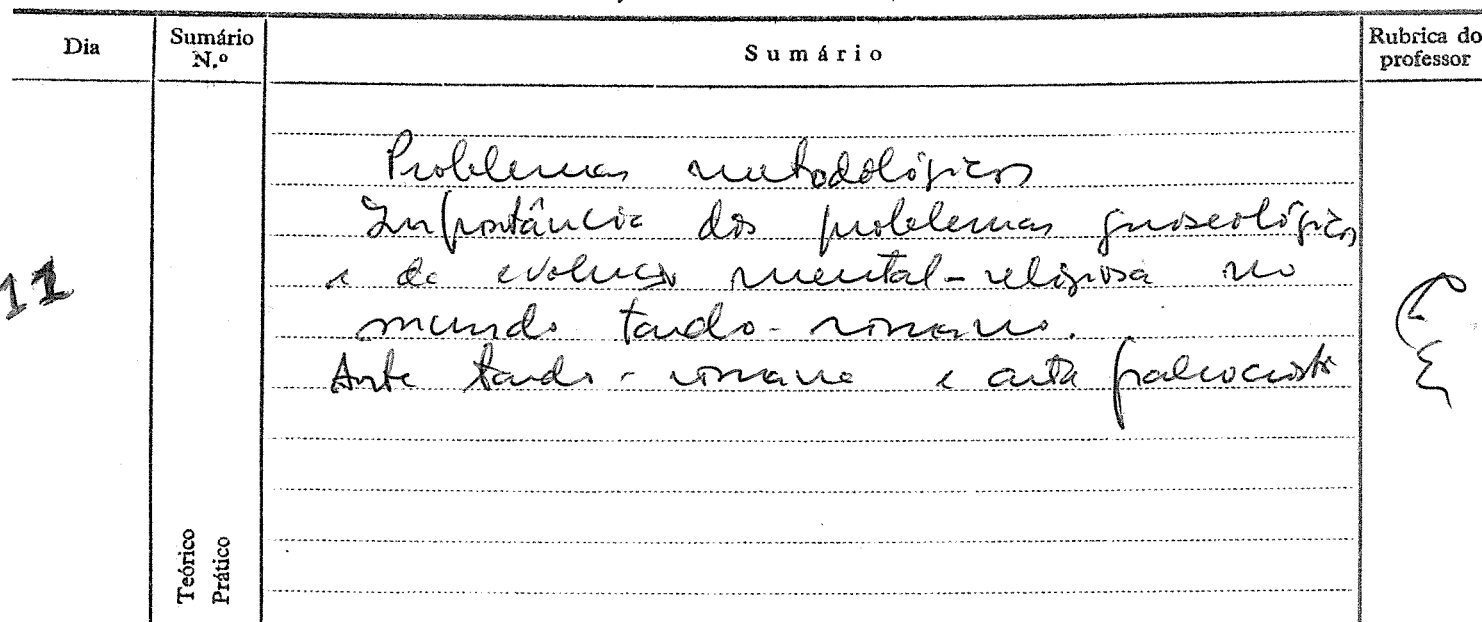 Dia
Sumário N.º
Sumário
Rubrica do professor
Problemas metodológicos
Importância dos problemas gnoseológicos
e da evolução mental-religiosa no
mundo tardo-romano.
Arte tardo-romana e arte paleocristã
11
Teórico
Prático